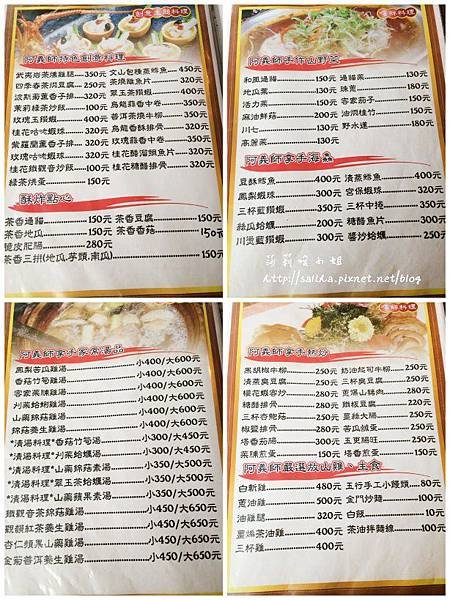 創意茶葉料理
阿義師特色創意料理
武夷岩茶燻雞腿....350元
四季春茶燜豆腐....200元
波斯菊薰香子排....320元
茉莉綠茶炒飯....100元
玫瑰玉鑽蝦....400元
桂花咕咾蝦球....320元
紫羅蘭薰香子排....320元
玫瑰咕咾蝦球....320元
桂花鐵觀音炒飯....100元
綠茶烘蛋....150元
文山包種蒸鱈魚....450元
茶燒雞魚片....320元
翠玉茶鑽蝦....400元
烏龍蒜香中卷....350元
普洱茶燒牛柳....300元
烏龍香酥排骨....300元
玫瑰蒜香中卷....350元
桂花醋溜鯛魚片....320元
桂花糖醋排骨....320元
酥炸點心
茶香過貓....150元
茶香地瓜....150元
脆皮肥腸....280元
茶香三拼(地瓜,芋頭,南瓜)....150元
茶香豆腐....150元
茶香香菇....150元
嚐鮮料理
阿義師手作山野菜
和風過貓....150元
地瓜葉....130元
活力菜....150元
麻油鮮菇....200元
川七....130元
高麗菜....130元
過貓菜....130元
珠蔥....180元
客家茄子....150元
油燜桂竹....150元
野水蓮....180元
阿義師拿手海鱻
豆酥鱈魚....400元
鳳梨蝦球....300元
三杯藍鑽蝦....350元
絲瓜蛤蠣....200元
川燙藍鑽蝦....300元
清蒸鱈魚....400元
宮保蝦球....320元
三杯中捲....350元
糖醋魚片....300元
醬沙蛤蠣....250元
莎莉娃小姐
http://saliha.pixnet.net/blog
阿義師拿手家常湯品
鳳梨苦瓜雞湯....小400/大600元
香菇竹筍雞湯....小400/大600元
客家菜脯雞湯....小400/大600元
刈菜蛤蜊雞湯....小400/大600元
山藥綿菇雞湯....小400/大600元
綿菇養生雞湯....小400/大600元
*清湯料理*香菇竹筍湯....小300/大450元
*清湯料理*刈菜蛤蠣湯....小350/大500元
*清湯料理*山藥綿菇素湯....小350/大500元
*清湯料理*翠玉茶蛤蠣湯....小350/大500元
*清湯料理*山藥蘋果素湯....小350/大500元
鐵觀音茶綿菇雞湯....小450/大650元
觀韻紅茶養生雞湯....小450/大650元
杏仁類黑山藥雞湯....小450/大650元
金萄普洱養生雞湯....小450/大650元
嚐鮮料理
阿義師拿手熱炒
黑胡椒牛柳....250元
清蒸臭豆腐....250元
櫻花蝦客炒....260元
糖醋排骨....260元
三杯杏鮑菇....250元
椒鹽排骨....300元
塔香茄腸....300元
菜脯煎蛋....150元
奶油起可牛柳....300元
三杯臭豆腐....250元
蔥薄山豬肉....260元
鐵板豆腐....200元
薑絲大腸....250元
苦瓜鹹蛋....250元
五更腸旺....250元
塔香煎蛋....150元
阿義師嚴選放山雞、主食
白斬雞....480元
蔥油雞....500元
油雞腿....320元
薑燜茶油雞....400元
三杯雞....400元
五行手工小饅頭....80元
金門炒麵....100元
白飯....10元
茶油拌麵線....100元